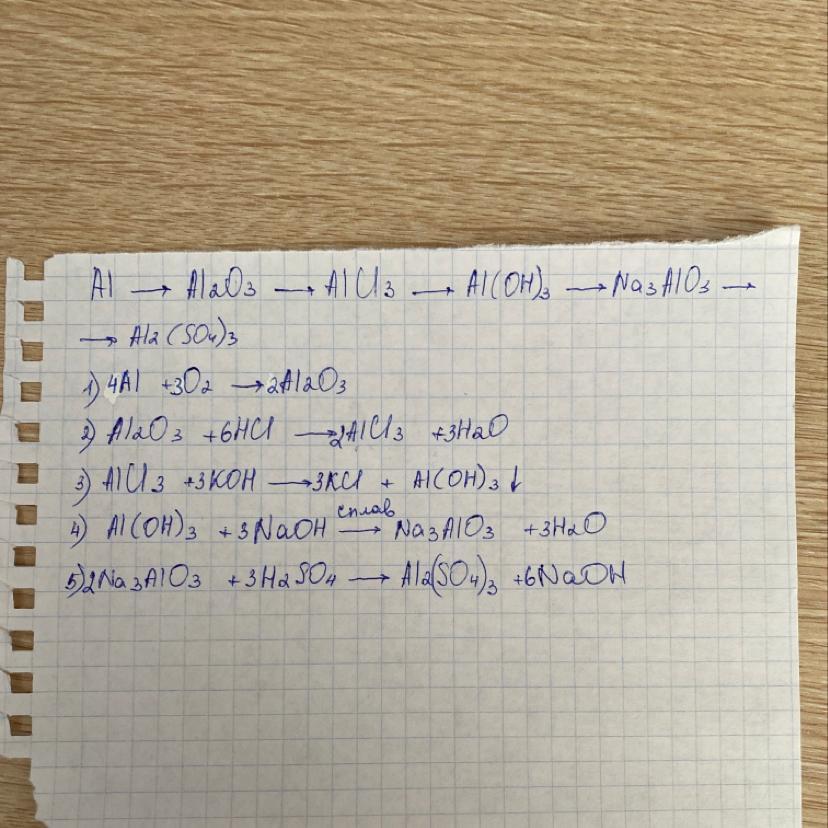 Al → Al2O3 → AlCl3 → Al(OH)3 → Na3AlO3 →
→ Al2(SO4)3
1) 4Al + 3O2 → 2Al2O3
2) Al2O3 + 6HCl → 2AlCl3 + 3H2O
3) AlCl3 + 3KOH → 3KCl + Al(OH)3↓
4) Al(OH)3 + 3NaOH сплав → Na3AlO3 + 3H2O
5) 2Na3AlO3 + 3H2SO4 → Al2(SO4)3 + 6NaOH